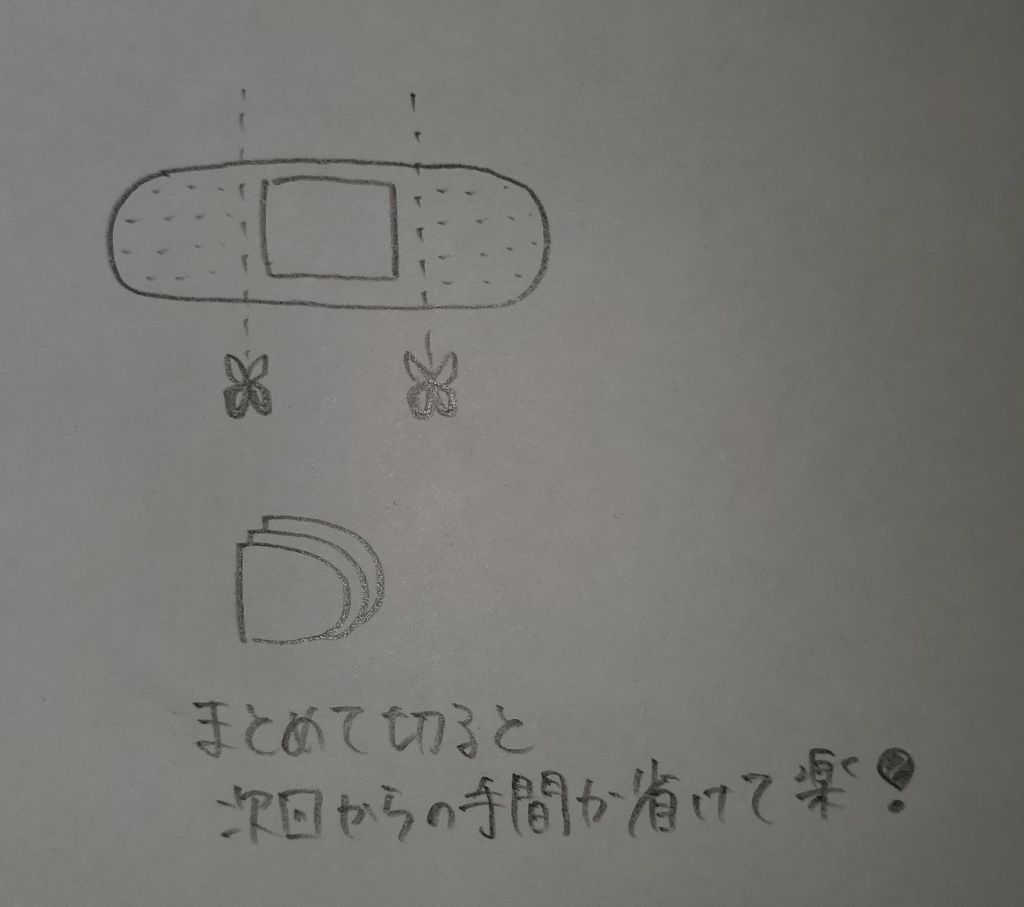 まとめて切ると
次回からの手間が省けて楽！